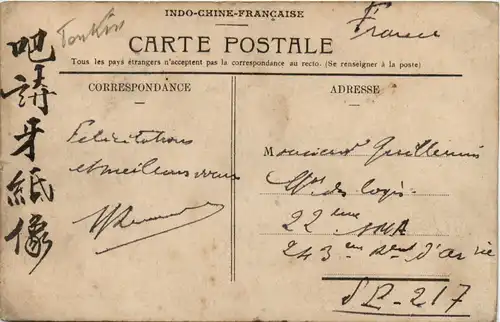 INDO-CHINE-FRANÇAISE
France
Tonkin
CARTE POSTALE
Tous les pays étrangers n'acceptent pas la correspondance au recto. (Se renseigner à la poste)
吧請牙紙像
CORRESPONDANCE
Félicitations
et meilleurs vœux
ADRESSE
Monsieur Guillemin
des logis
22 ème
243 ème d'artie
SP-217